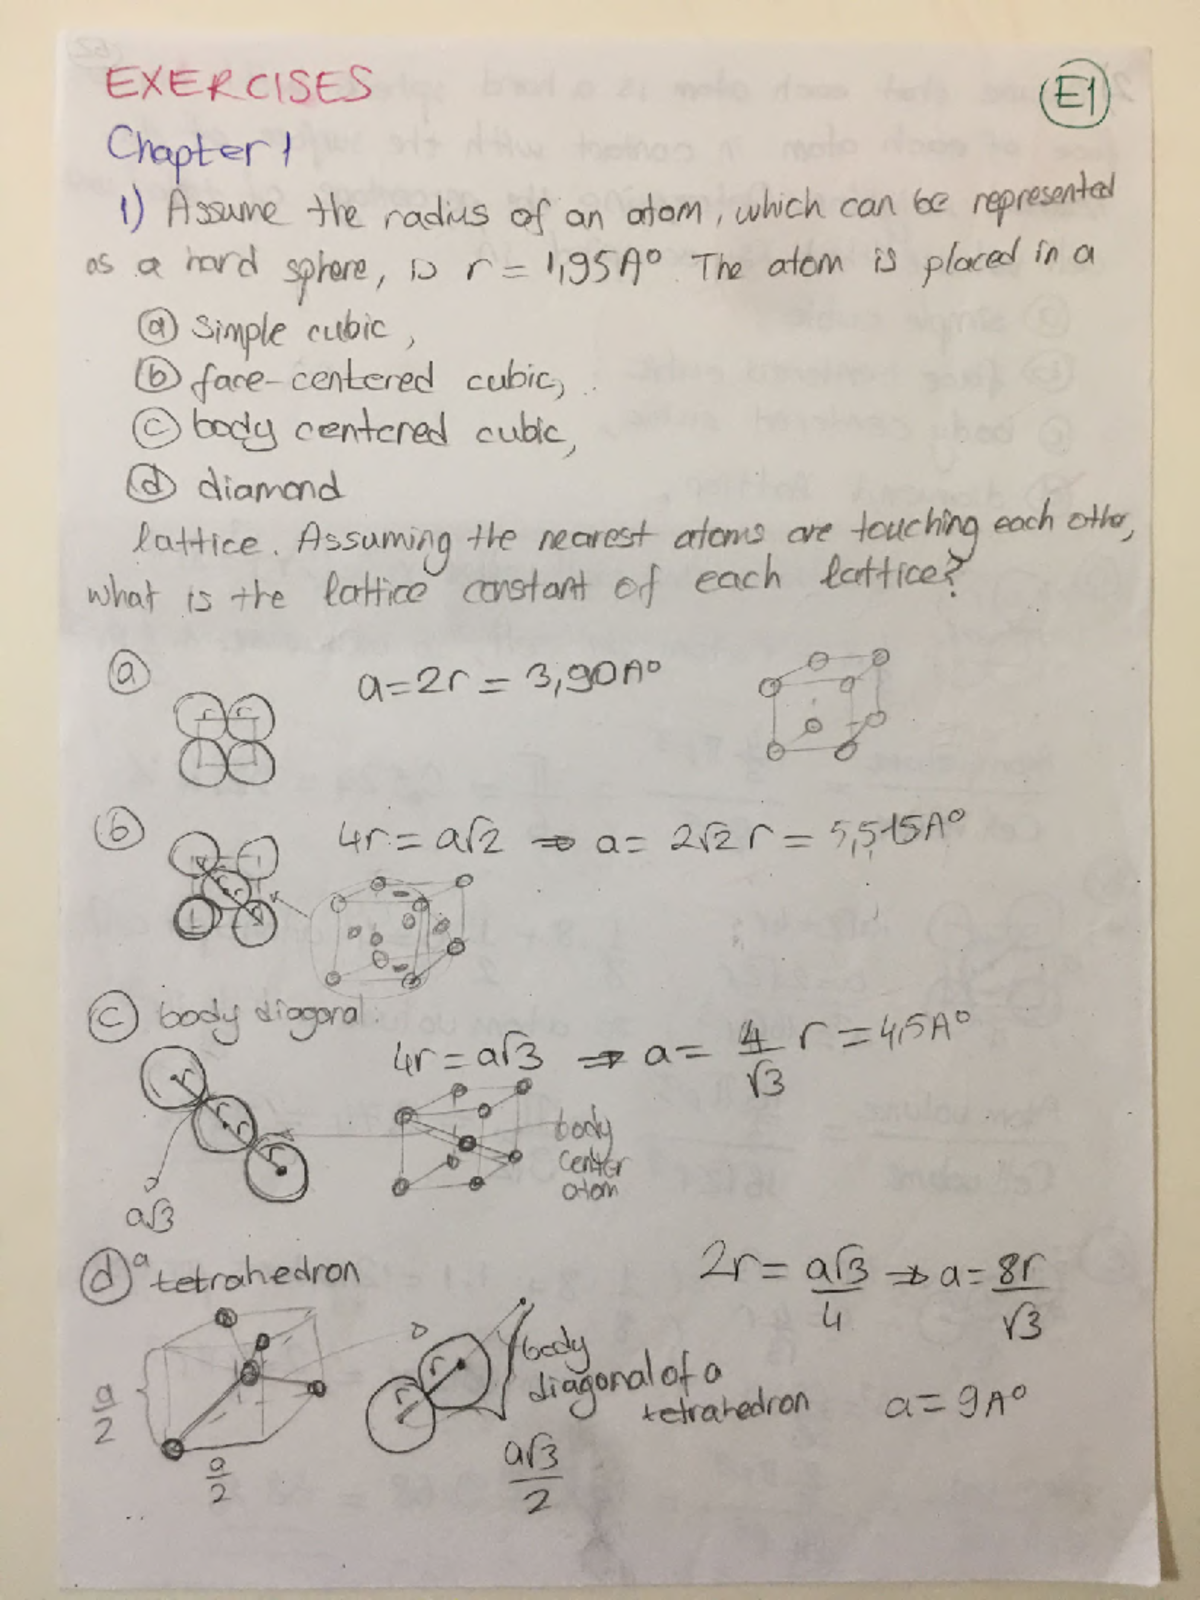 EXERCISES
E1
Chapter 1
1) Assume the radius of an atom, which can be represented
as a hard sphere, is r = 1,95A°. The atom is placed in a
ⓐ simple cubic,
ⓑ face-centered cubic,
ⓒ body centered cubic,
ⓓ diamond
lattice. Assuming the nearest atoms are touching each other,
what is the lattice constant of each lattice?
ⓐ a=2r = 3,90A°
r r
ⓑ 4r = a√2 ⇒ a = 2√2 r = 5,515A°
ⓒ body diagonal:
4r = a√3 ⇒ a = 4/√3 r = 4,5A°
r
r
r
body
center
atom
a√3
ⓓ a tetrahedron
2r = a√3/4 ⇒ a = 8r/√3
r
r
body
diagonal of a
tetrahedron
a = 9A°
a/2
a/2
a√3/2